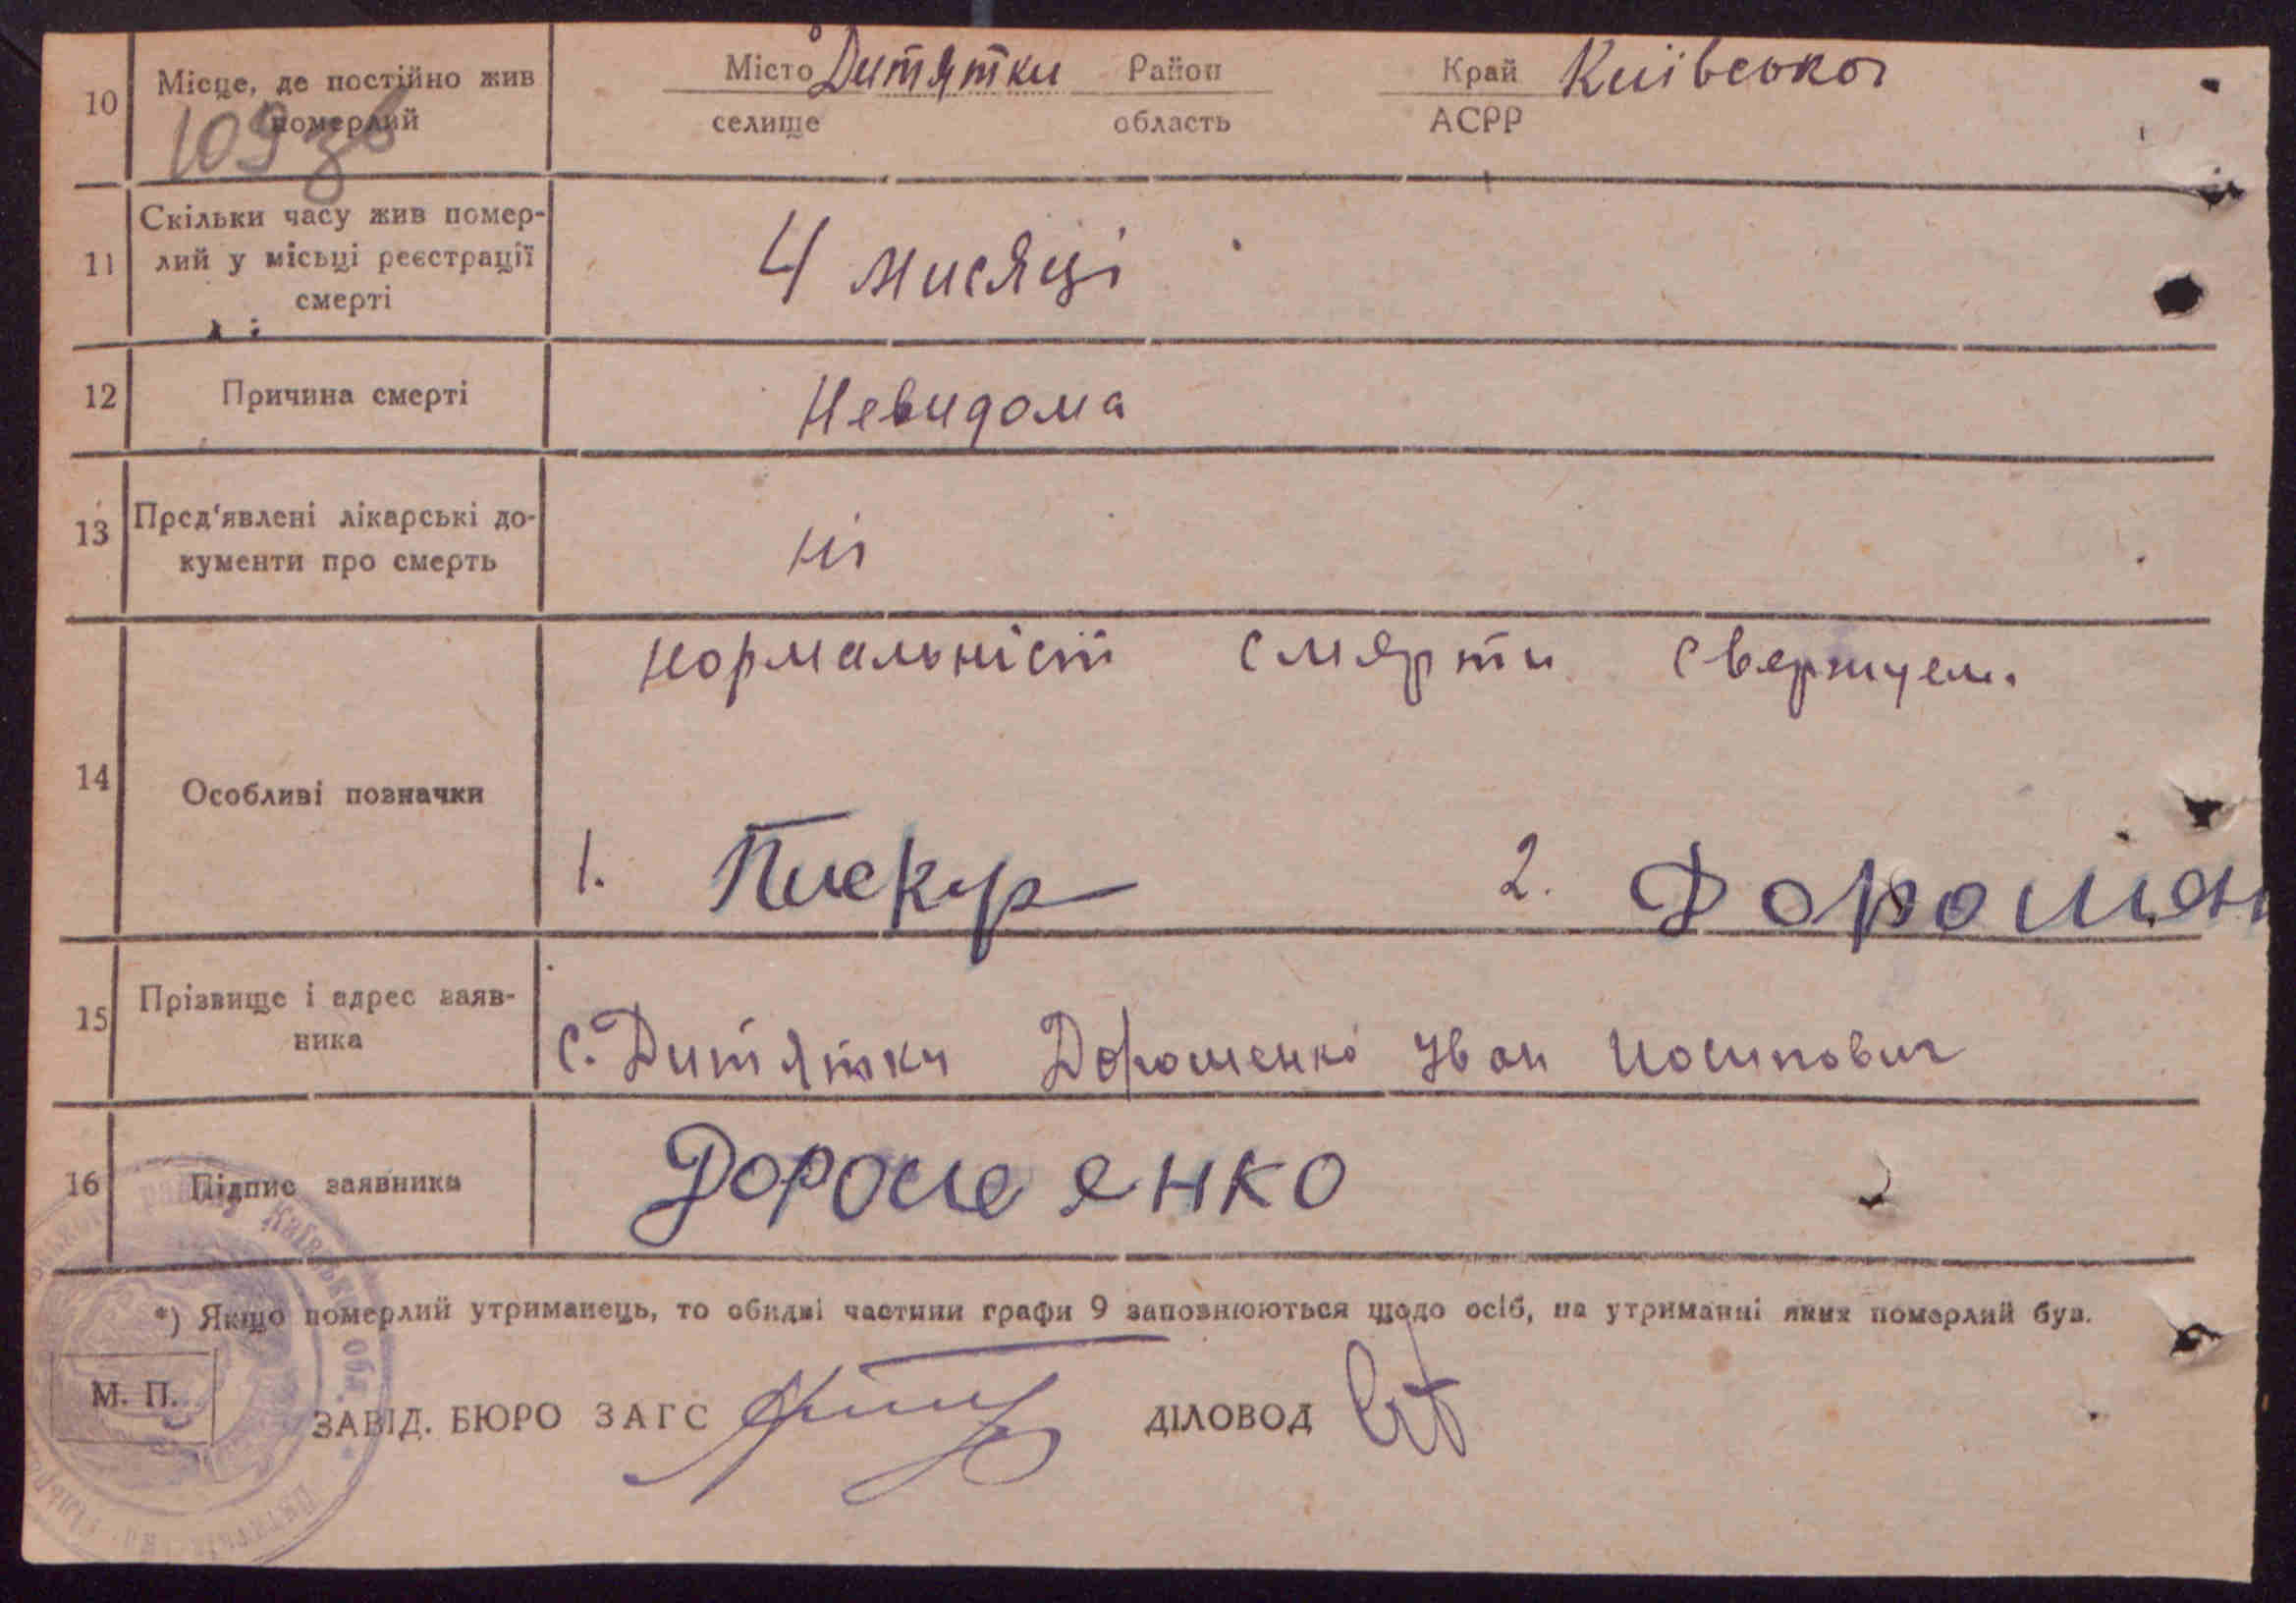 10 Місце, де постійно жив померлий
109 зв
Місто Дитятки Район Край Київської
селище область АСРР
11 Скільки часу жив помер-
лий у місьці реєстрації
смерті
4 мисяці
12 Причина смерті Невидома
13 Пред'явлені лікарські до-
кументи про смерть
ні
нормальність смярти свержуем.
14 Особливі позначки
1. Пискур 2. Дорошен
15 Прізвище і адрес заяв-
ника
с. Дитятки Дорошенко Іван Иосипович
16 Підпис заявника Дорошенко
*) Якщо померлий утриманець, то обидві частини графи 9 заповнюються щодо осіб, на утриманні яких померлий був.
М. П.
ЗАВІД. БЮРО ЗАГС ДІЛОВОД
району Київської обл.